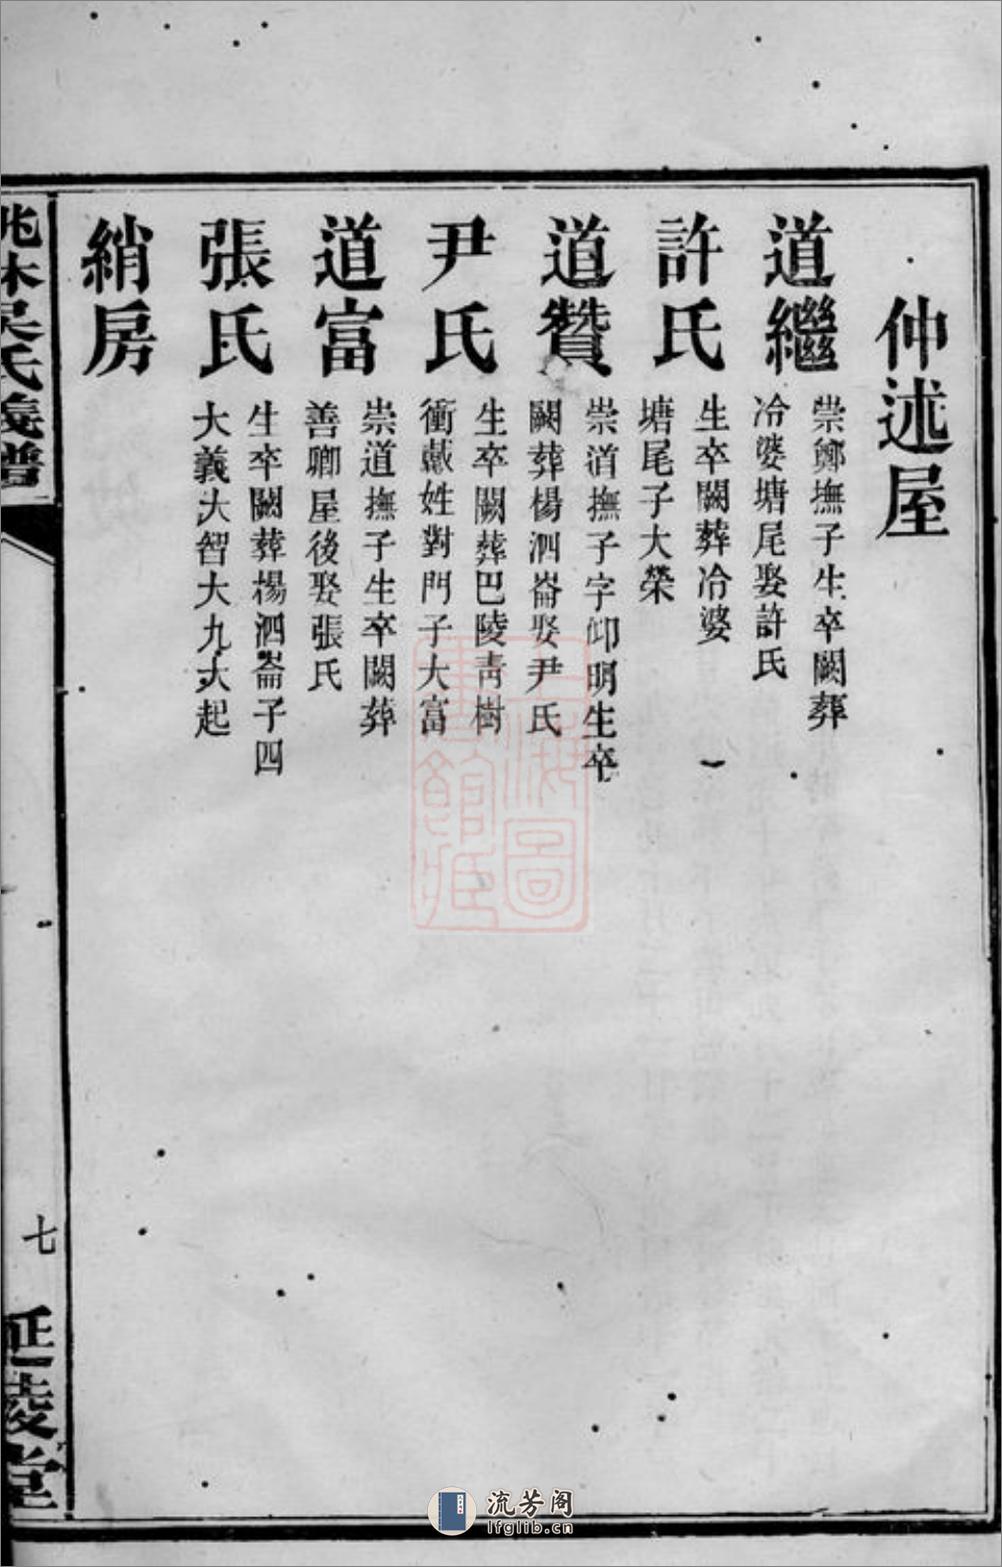 仲述屋
道繼
崇鄭撫子生卒闕葬
冷婆塘尾娶許氏
許氏
生卒闕葬冷婆
塘尾子大榮
道贊
崇道撫子字仰明生卒
闕葬楊泗崙娶尹氏
尹氏
生卒闕葬巴陵靑樹
衝戴姓對門子大富
道富
崇道撫子生卒闕葬
善卿屋後娶張氏
張氏
生卒闕葬楊泗崙子四
大義大智大九大起
綃房
林吳氏義譜
七
延陵堂
上海圖書館藏
流芳阁
lfglib.cn